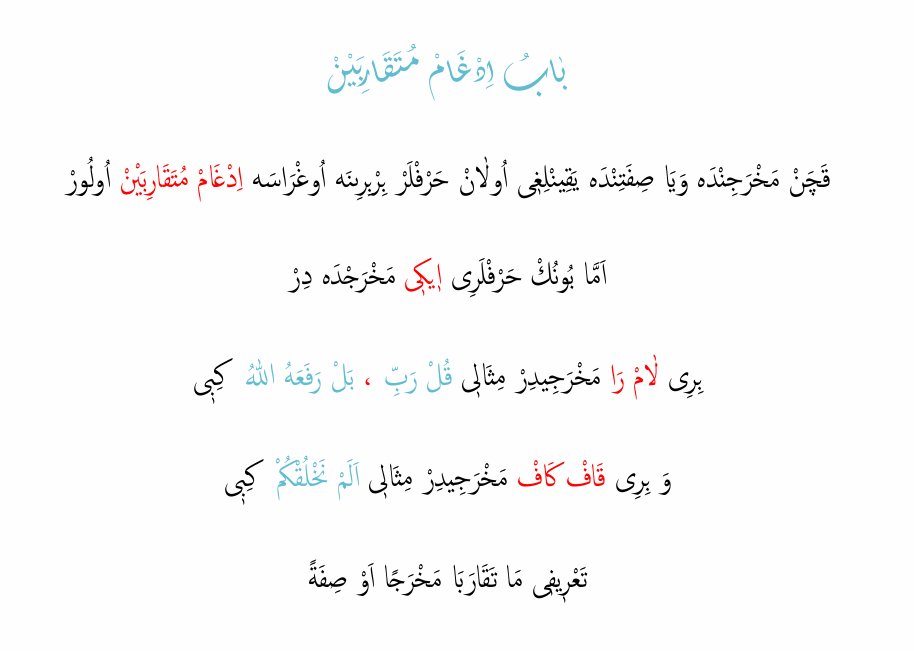 بَابُ اِدْغَامْ مُتَقَارِبَيْنْ
قَچَنْ مَخْرَجِنْدَه وَيَا صِفَتِنْدَه يَقِينْلِغٖى اُولَانْ حَرْفْلَرْ بِرْبِرِينَه اُوغْرَاسَه اِدْغَامْ مُتَقَارِبَيْنْ اُولُورْ
اَمَّا بُونُكْ حَرْفْلَرِى اٖيكٖى مَخْرَجْدَه دِرْ
بِرِى لَامْ رَا مَخْرَجِيدِرْ مِثَالٖى قُلْ رَبِّ ، بَلْ رَفَعَهُ اللّٰهُ كِبٖى
وَ بِرِى قَافْ كَافْ مَخْرَجِيدِرْ مِثَالٖى اَلَمْ نَخْلُقْكُمْ كِبٖى
تَعْرٖيفٖى مَا تَقَارَبَا مَخْرَجًا اَوْ صِفَةً